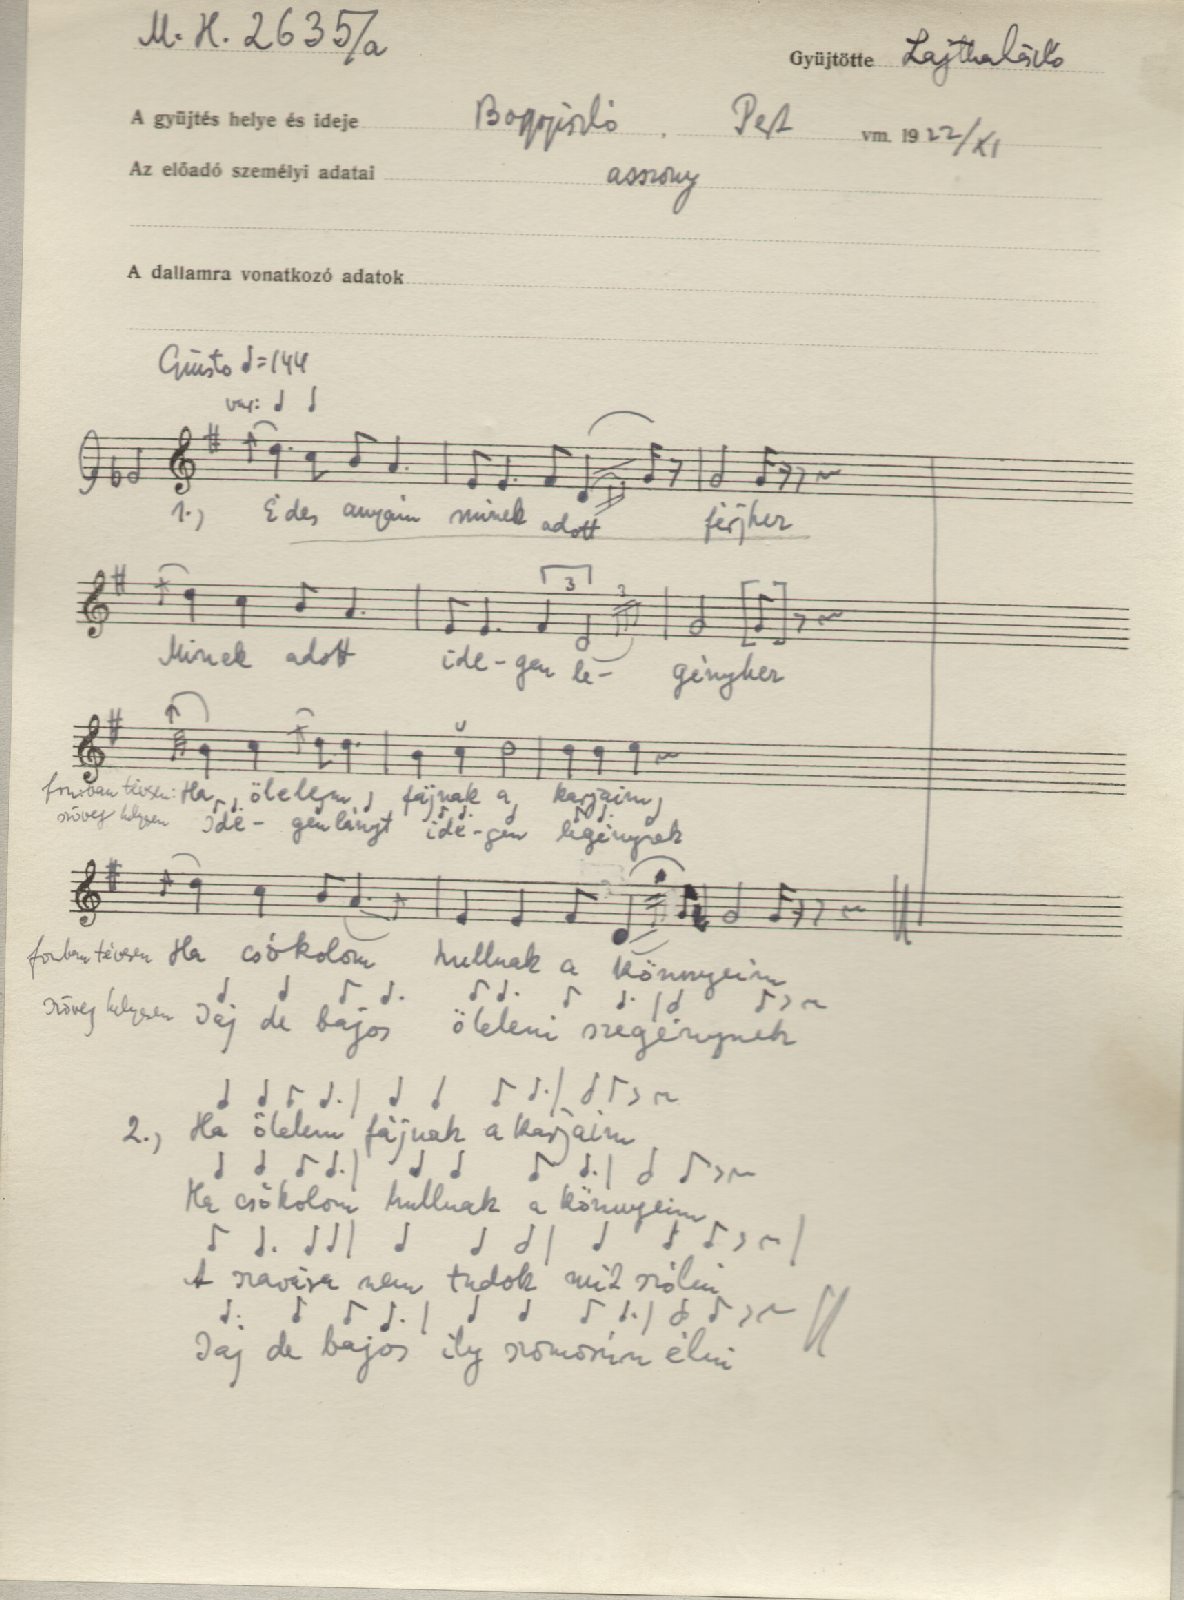 M. H. 2635/a
Gyüjtötte Lajtha László
A gyüjtés helye és ideje Bogyiszló, Pest vm. 1922/XI
Az előadó személyi adatai asszony
A dallamra vonatkozó adatok
Giusto ♩=144
var: ♩ ♩
1., Édes anyám minek adott férjhez
3 3
Minek adott ide-gen le-gényhez
fonóban tévesen: Ha ölelem fájnak a karjaim
szöveg helyesen Ide-gen lányt ide-gen legénynek
tévesen Ha csókolom hullnak a könnyeim
szöveg helyesen Jaj de bajos ölelni szegénynek
2., Ha ölelem fájnak a karjaim
Ha csókolom hullnak a könnyeim
A szavára nem tudok mit szólni
Jaj de bajos ily szomorún élni